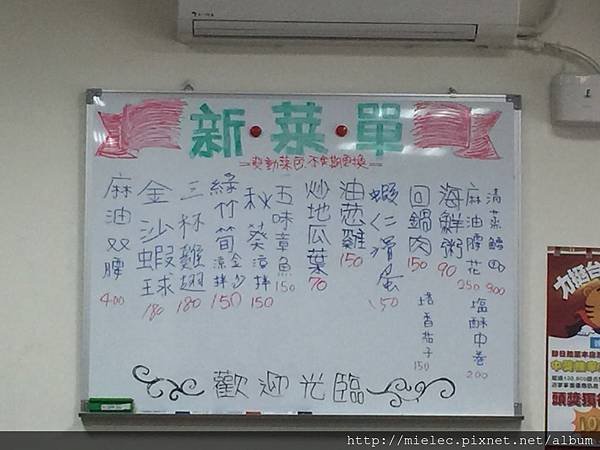 新·菜·單
=變動菜色,不定期更換=
清蒸鱈魚 900
麻油腰花 250
塩酥中卷 200
海鮮粥 90
回鍋肉 150
塔香茄子 150
蝦仁滑蛋 150
油蔥雞 150
炒地瓜葉 70
五味章魚 150
秋葵涼拌 150
綠竹筍 金沙 涼拌 150
三杯雞翅 180
金沙蝦球 180
麻油双腰 400
歡迎光臨
力挺台
頭獎獨
http://mielec.pixnet.net/album